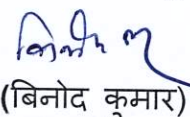 (बिनोद कुमार)